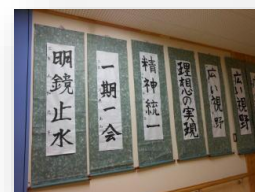 明鏡止水
一期一会
精神統一
理想の実現
広い視野
広い視野